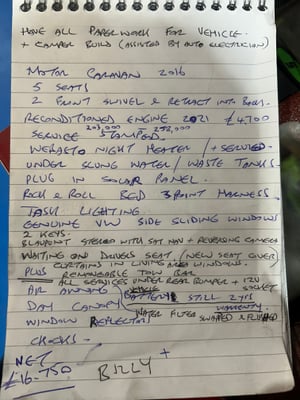 HAVE ALL PAPERWORK FOR VEHICLE.
+ CAMPER BUILD (ASSISTED BY AUTO ELECTRICIAN)
MOTOR CARAVAN 2016
5 SEATS
2 FRONT SWIVEL & RETRACT INTO BEDS.
RECONDITIONED ENGINE 2021 £4700
203,000 292,000
SERVICE STAMPED.
WEBASTO NIGHT HEATER / + SERVICED
UNDER SLUNG WATER / WASTE TANKS
PLUG IN SOLAR PANEL.
ROCK & ROLL BED 3 POINT HARNESS.
TASK LIGHTING.
GENUINE VW SIDE SLIDING WINDOWS
2 KEYS.
BLAUPUNT STEREO WITH SAT NAV + REVERSING CAMERA
WAITING ON DRIVERS SEAT / NEW SEAT COVER
CURTAINS IN LIVING AREA WINDOWS.
PLUS REMOVEABLE TOW BAR
ALL SERVICES UNDER REAR BUMPER + 12V SOCKET
AIR AWNING
DAY CANOPY BATTERY STILL 2 YRS WARRANTY
WATER FILTER SWAPPED & FLUSHED
WINDOW REFLECTORS
CHOCKS.
NET
£16.750 BILLY +